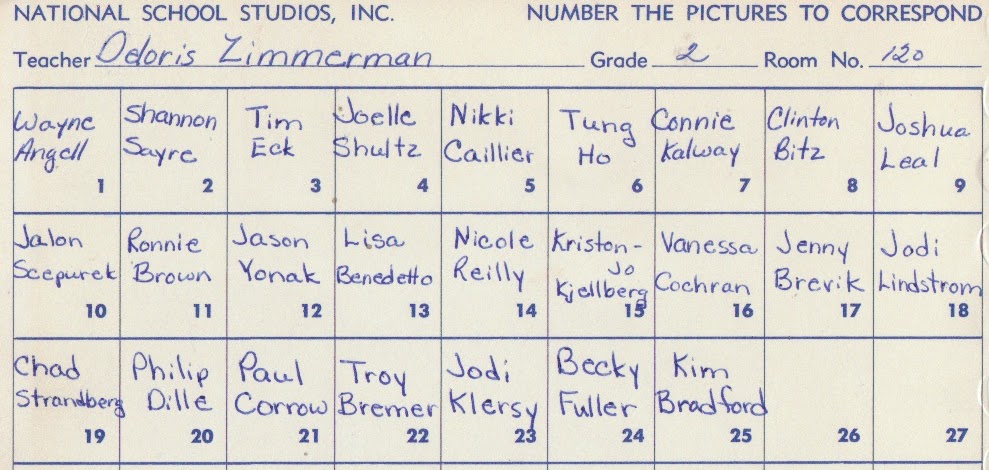 NATIONAL SCHOOL STUDIOS, INC. NUMBER THE PICTURES TO CORRESPOND
Teacher Odoris Zimmerman Grade 2 Room No. 120
Wayne Angell 1
Shannon Sayre 2
Tim Eck 3
Joelle Shultz 4
Nikki Caillier 5
Tung Ho 6
Connie Kalway 7
Clinton Bitz 8
Joshua Leal 9
Jalon Scepurek 10
Ronnie Brown 11
Jason Yonak 12
Lisa Benedetto 13
Nicole Reilly 14
Kriston-Jo Kjellberg 15
Vanessa Cochran 16
Jenny Brevik 17
Jodi Lindstrom 18
Chad Strandberg 19
Philip Dille 20
Paul Corrow 21
Troy Bremer 22
Jodi Klersy 23
Becky Fuller 24
Kim Bradford 25
26
27